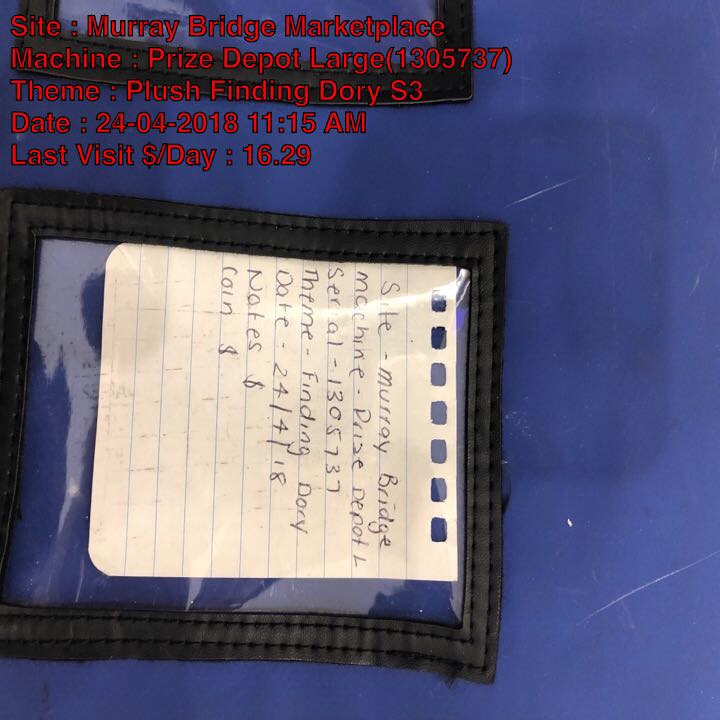 Site : Murray Bridge Marketplace
Machine : Prize Depot Large(1305737)
Theme : Plush Finding Dory S3
Date : 24-04-2018 11:15 AM
Last Visit $/Day : 16.29
Site - Murray Bridge
Machine - Prize Depot L
Serial - 1305737
Theme - Finding Dory
Date - 24/4/18
Notes $
Coin $